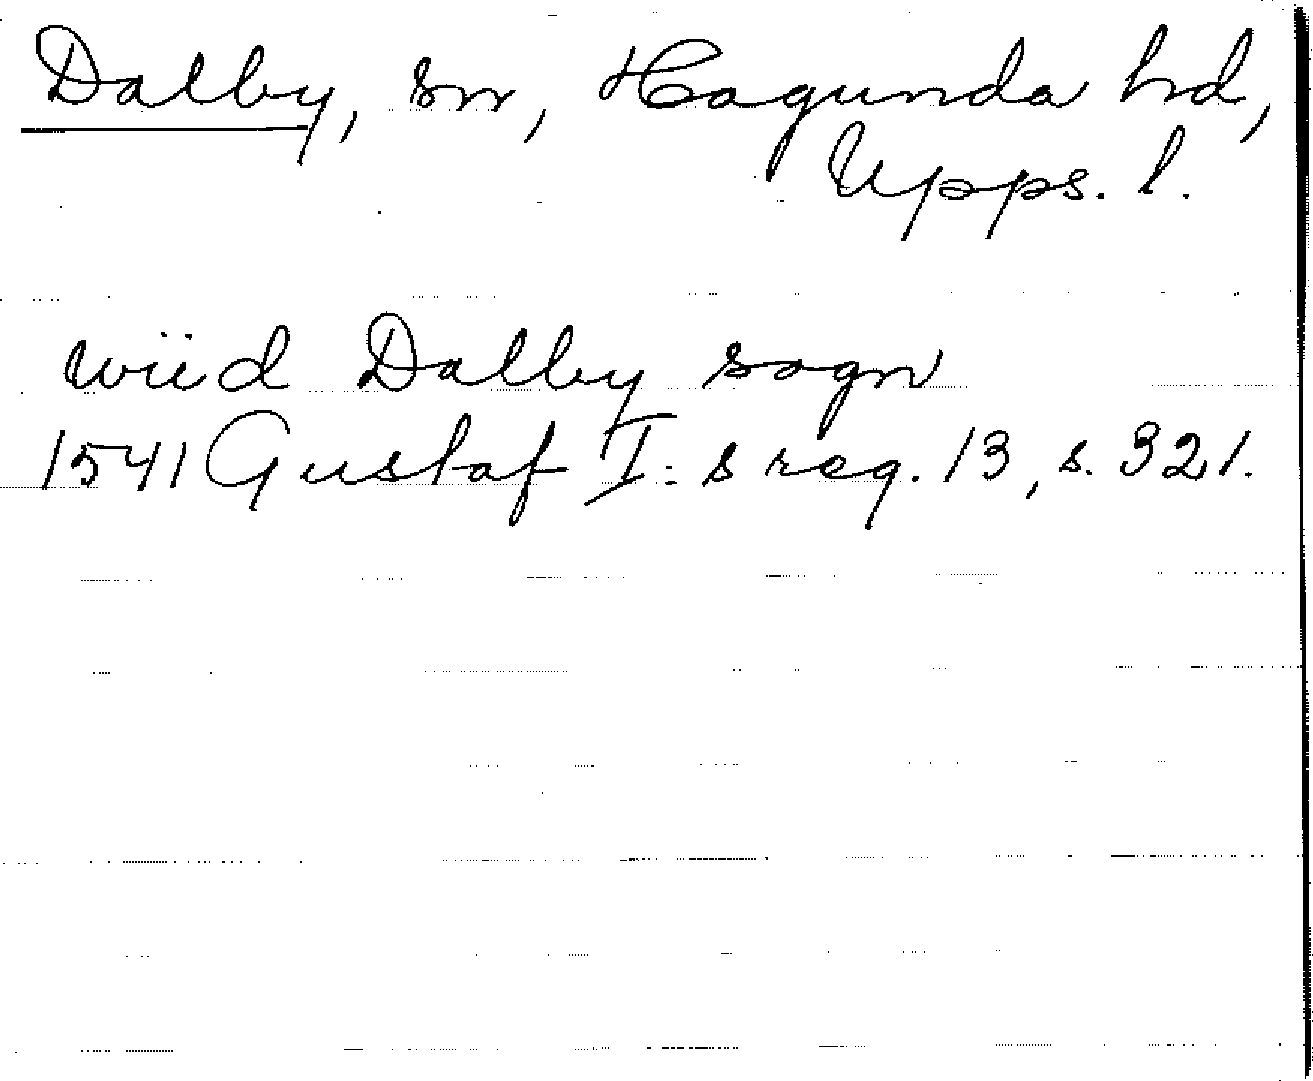 Dalby, sn, Hagunda hd,
Upps. l.
wiid Dalby sogn
1541 Gustaf I:s reg. 13, s. 321.